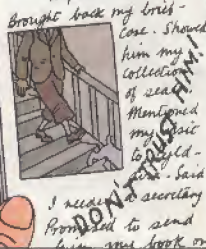 Brought back my brief-
case. Showed
him my
collection
of sea
Mentioned
my
to
Said
I needed a secretary
Promised to send
my book on
DON'T TRUST HIM!